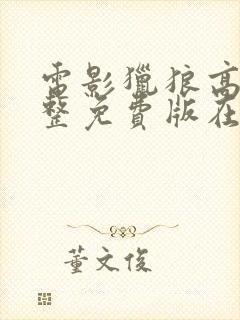 電影獵狼高
整免費版在
董文俊